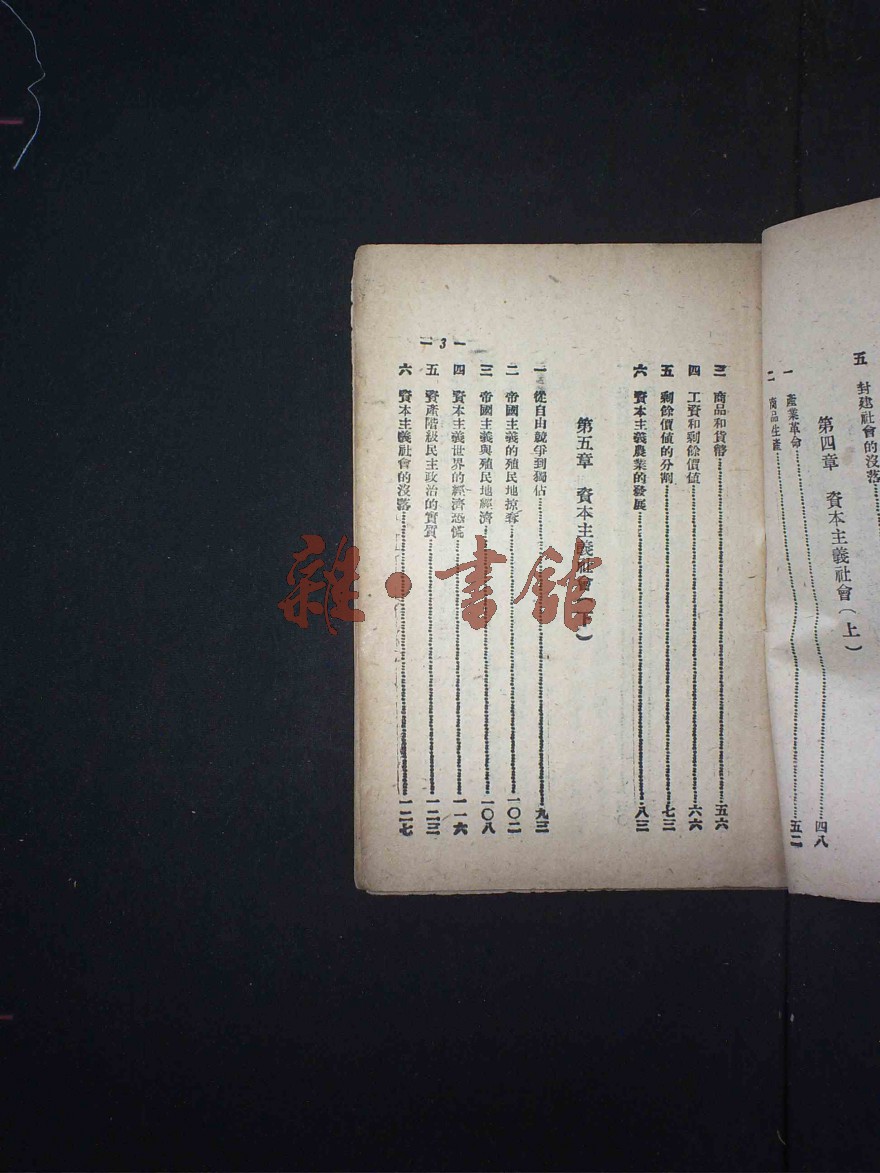 五　封建社會的沒落
第四章　資本主義社會(上)
一　產業革命……四八
二　商品生產……五二
三　商品和貨幣……五六
四　工資和剩餘價値……六六
五　剩餘價値的分割……七三
六　資本主義農業的發展……八三
第五章　資本主義社會(下)
一　從自由競爭到獨佔……九三
二　帝國主義的殖民地掠奪……一〇二
三　帝國主義與殖民地經濟……一〇八
四　資本主義世界的經濟恐慌……一一六
五　資產階級民主政治的實質……一二三
六　資本主義社會的沒落……一二七
— 3 —
雜·書館